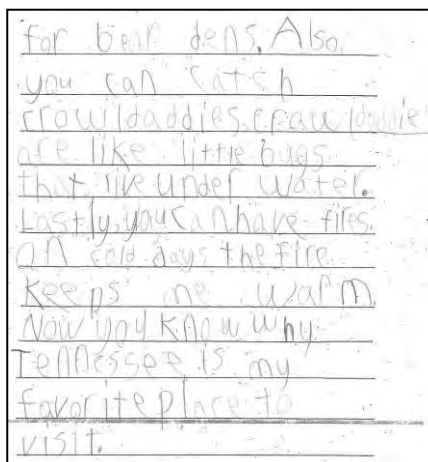 for bear dens. Also
you can catch
crowldaddies. crawldaddie
are like little bugs
that live under water.
Lastly, you can have fires.
On cold days the fire
keeps me warm.
Now you know why
Tennessee is my
favorite place to
visit.